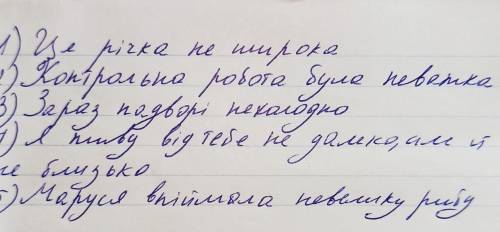 1) Це річка не широка
2) Контрольна робота була неважка
3) Зараз надворі нехолодно
4) Я живу від тебе не далеко, ал й
не близько
5) Маруся впіймала невелику рибу